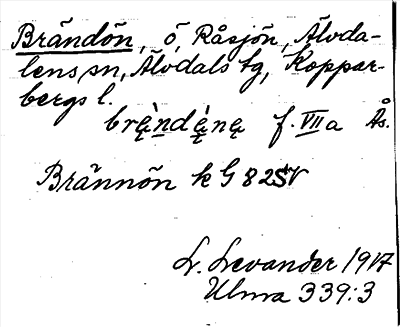 Brändön, ö, Råsjön, Älvda-
lens sn, Älvdals tg, Koppar-
bergs l.
f. VII a Ås.
Brännön k G 82 SV
L. Levander 1917
Ulma 339:3